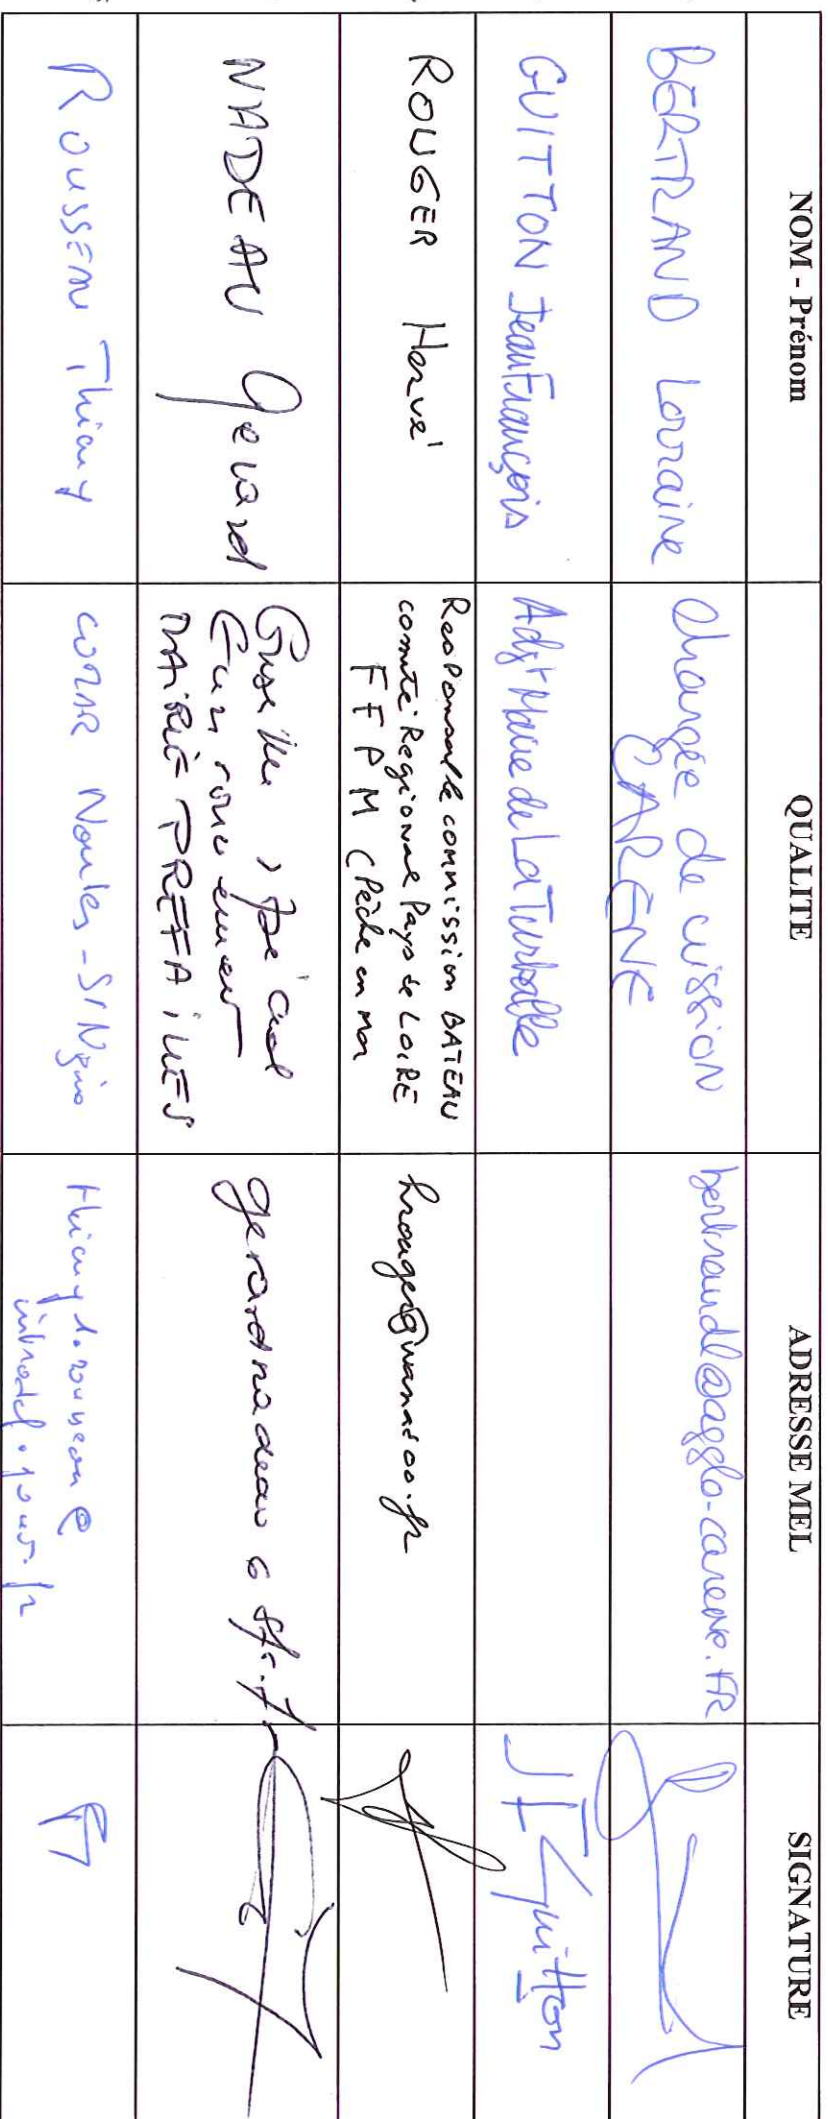 NOM - Prénom QUALITE ADRESSE MEL SIGNATURE
BERTRAND Lorraine
chargée de mission
CARENE
bertrandl@agglo-carene.FR
GUITTON Jean François
Adjt Maire de La Turballe
JF Guitton
ROUGER Hervé
Responsable commission BATEAU
comité Régional Pays de LOIRE
F F P M (Pêche en mer
hrouger@wanadoo.fr
NADEAU Gerard
MAIRIE PREFAILLES
gerardnadeau @ sfr.fr
ROUSSEAU Thierry
Nantes - St Nazaire